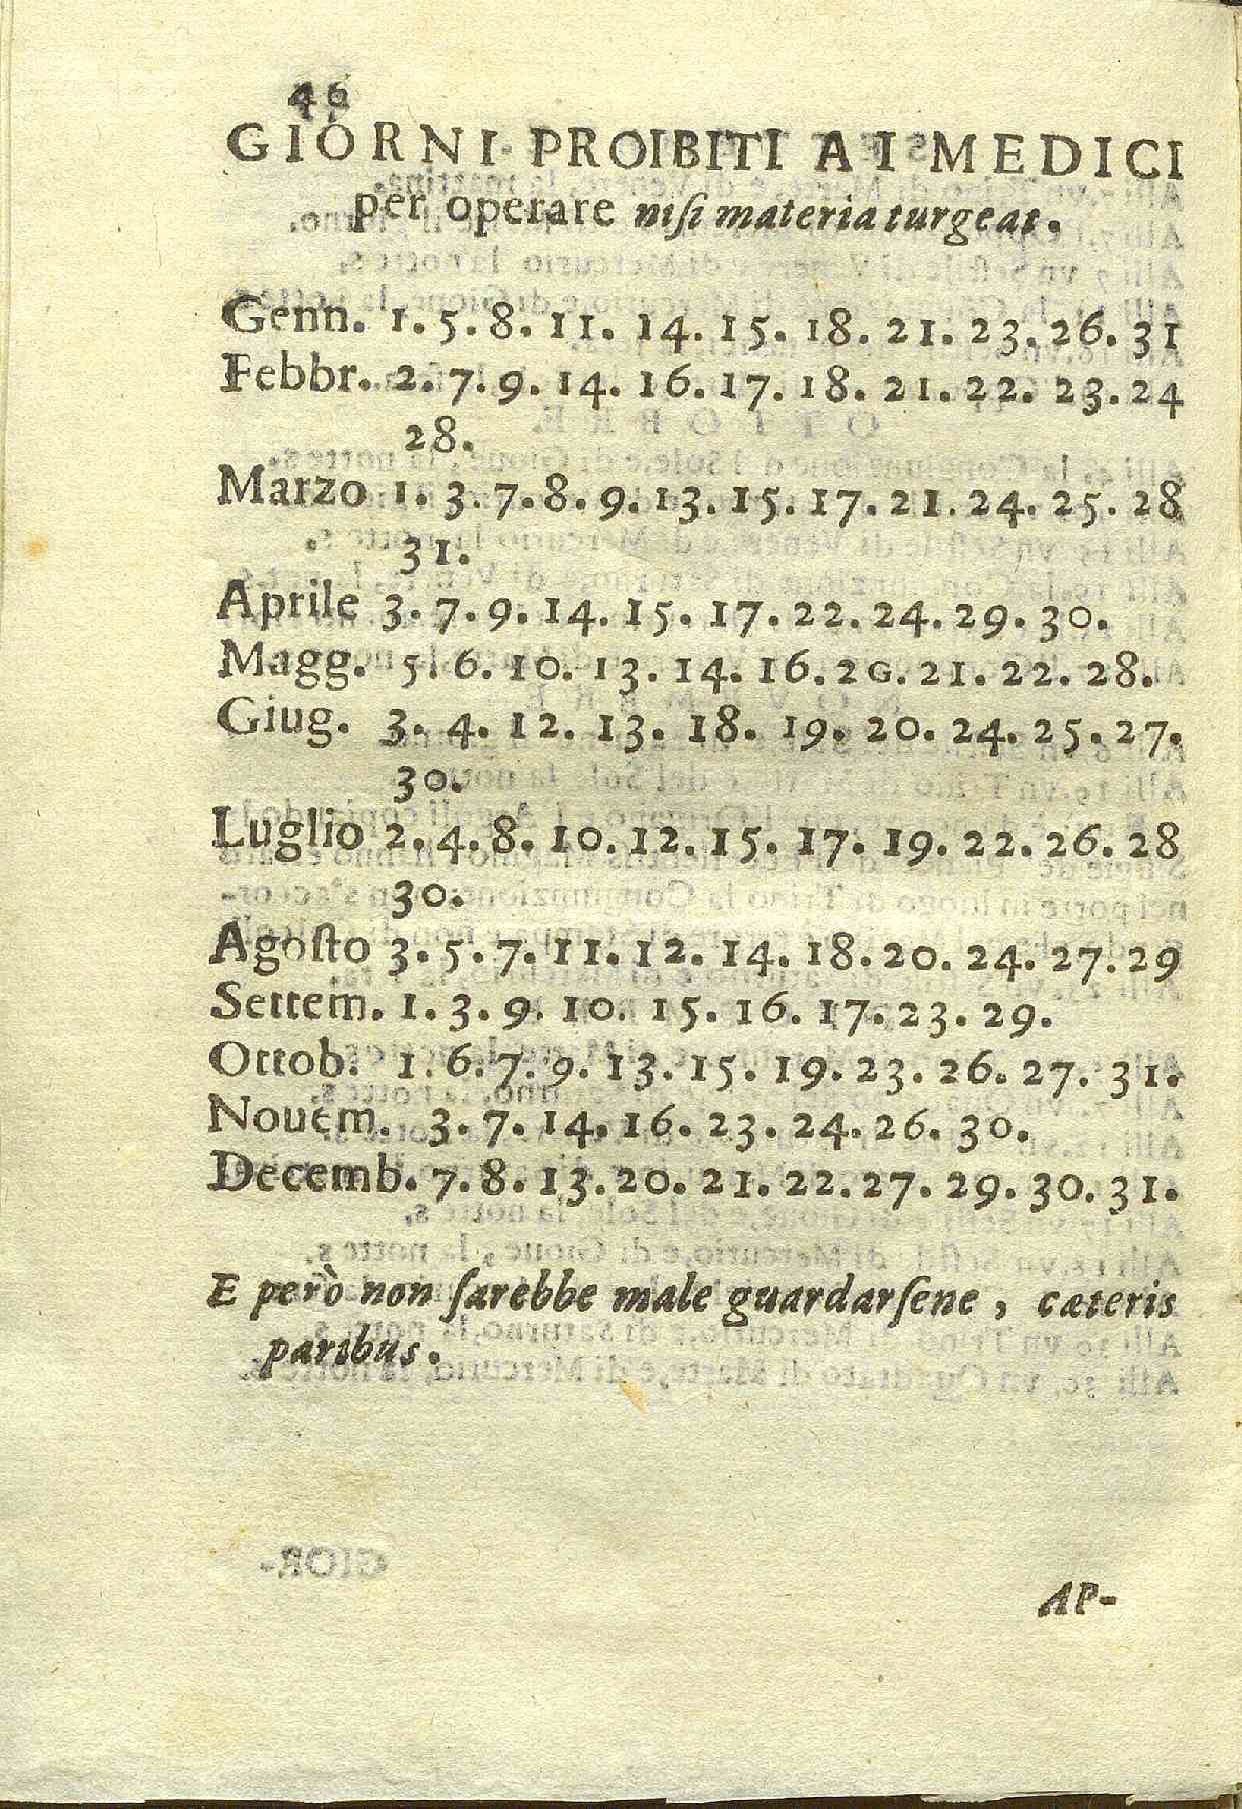 46
GIORNI PROIBITI AI MEDICI
per operare niſi materia turgeat.
Genn. 1. 5. 8. 11. 14. 15. 18. 21. 23. 26. 31
Febbr. 2. 7. 9. 14. 16. 17. 18. 21. 22. 23. 24
28.
Marzo 1. 3. 7. 8. 9. 13. 15. 17. 21. 24. 25. 28
31.
Aprile 3. 7. 9. 14. 15. 17. 22. 24. 29. 30.
Magg. 5. 6. 10. 13. 14. 16. 2G. 21. 22. 28.
Giug. 3. 4. 12. 13. 18. 19. 20. 24. 25. 27.
30.
Luglio 2. 4. 8. 10. 12. 15. 17. 19. 22. 26. 28
30.
Agoſto 3. 5. 7. 11. 12. 14. 18. 20. 24. 27. 29
Settem. 1. 3. 9. 10. 15. 16. 17. 23. 29.
Ottob. 1. 6. 7. 9. 13. 15. 19. 23. 26. 27. 31.
Nouem. 3. 7. 14. 16. 23. 24. 26. 30.
Decemb. 7. 8. 13. 20. 21. 22. 27. 29. 30. 31.
E però non ſarebbe male guardarſene, cæteris
paribus.
AP-